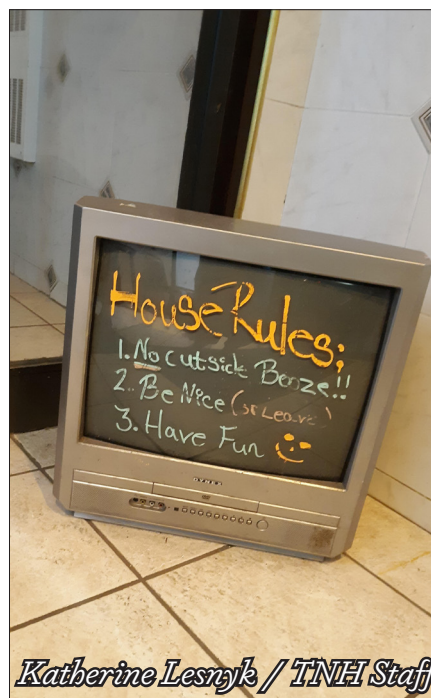 House Rules:
1. No outside Booze!!
2. Be Nice (or Leave)
3. Have Fun
Katherine Lesnyk / TNH Staff